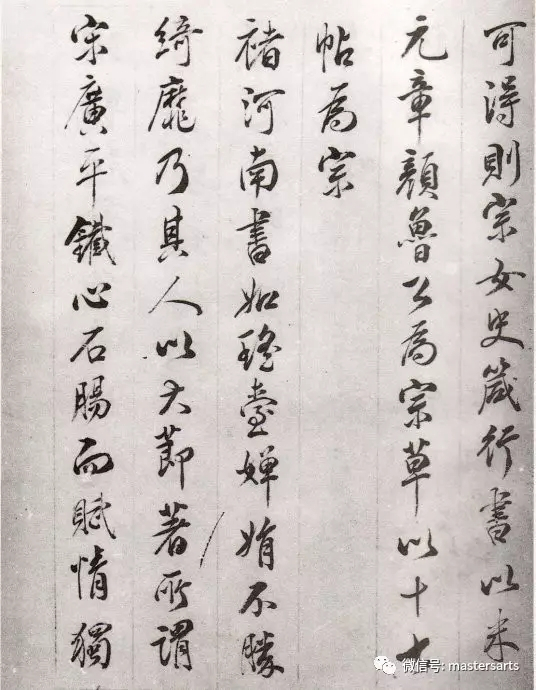 可得則宗女史箴行書以米
元章顏魯公為宗草以十七
帖為宗
褚河南書如瑤臺嬋娟不勝
綺靡乃其人以大節著所謂
宋廣平鐵心石腸而賦情獨
微信号: mastersarts